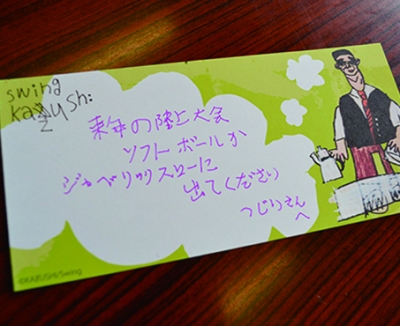 swing
kazushi
来年の陸上大会
ソフトボールか
ジャベリックスローに
出てください
つじりさん
へ
©KAZUSHI/Swing